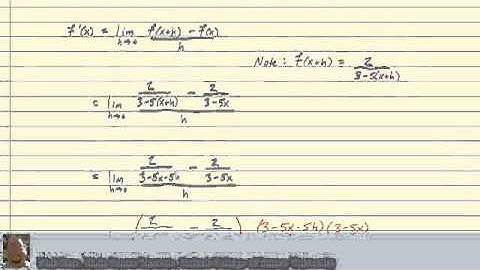 f'(x) = lim h→0 (f(x+h) - f(x)) / h
Note: f(x+h) = 2 / (3-5(x+h))
= lim h→0 (2 / (3-5(x+h)) - 2 / (3-5x)) / h
= lim h→0 (2 / (3-5x-5h) - 2 / (3-5x)) / h
(2 - 2) (3-5x-5h)(3-5x)